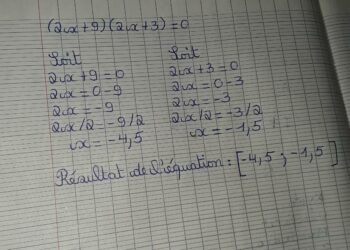 (2x+9)(2x+3)=0
Soit
2x+9=0
2x=0-9
2x=-9
2x/2=-9/2
x=-4,5
Soit
2x+3=0
2x=0-3
2x=-3
2x/2=-3/2
x=-1,5
Résultat de l'équation: [-4,5 ; -1,5]